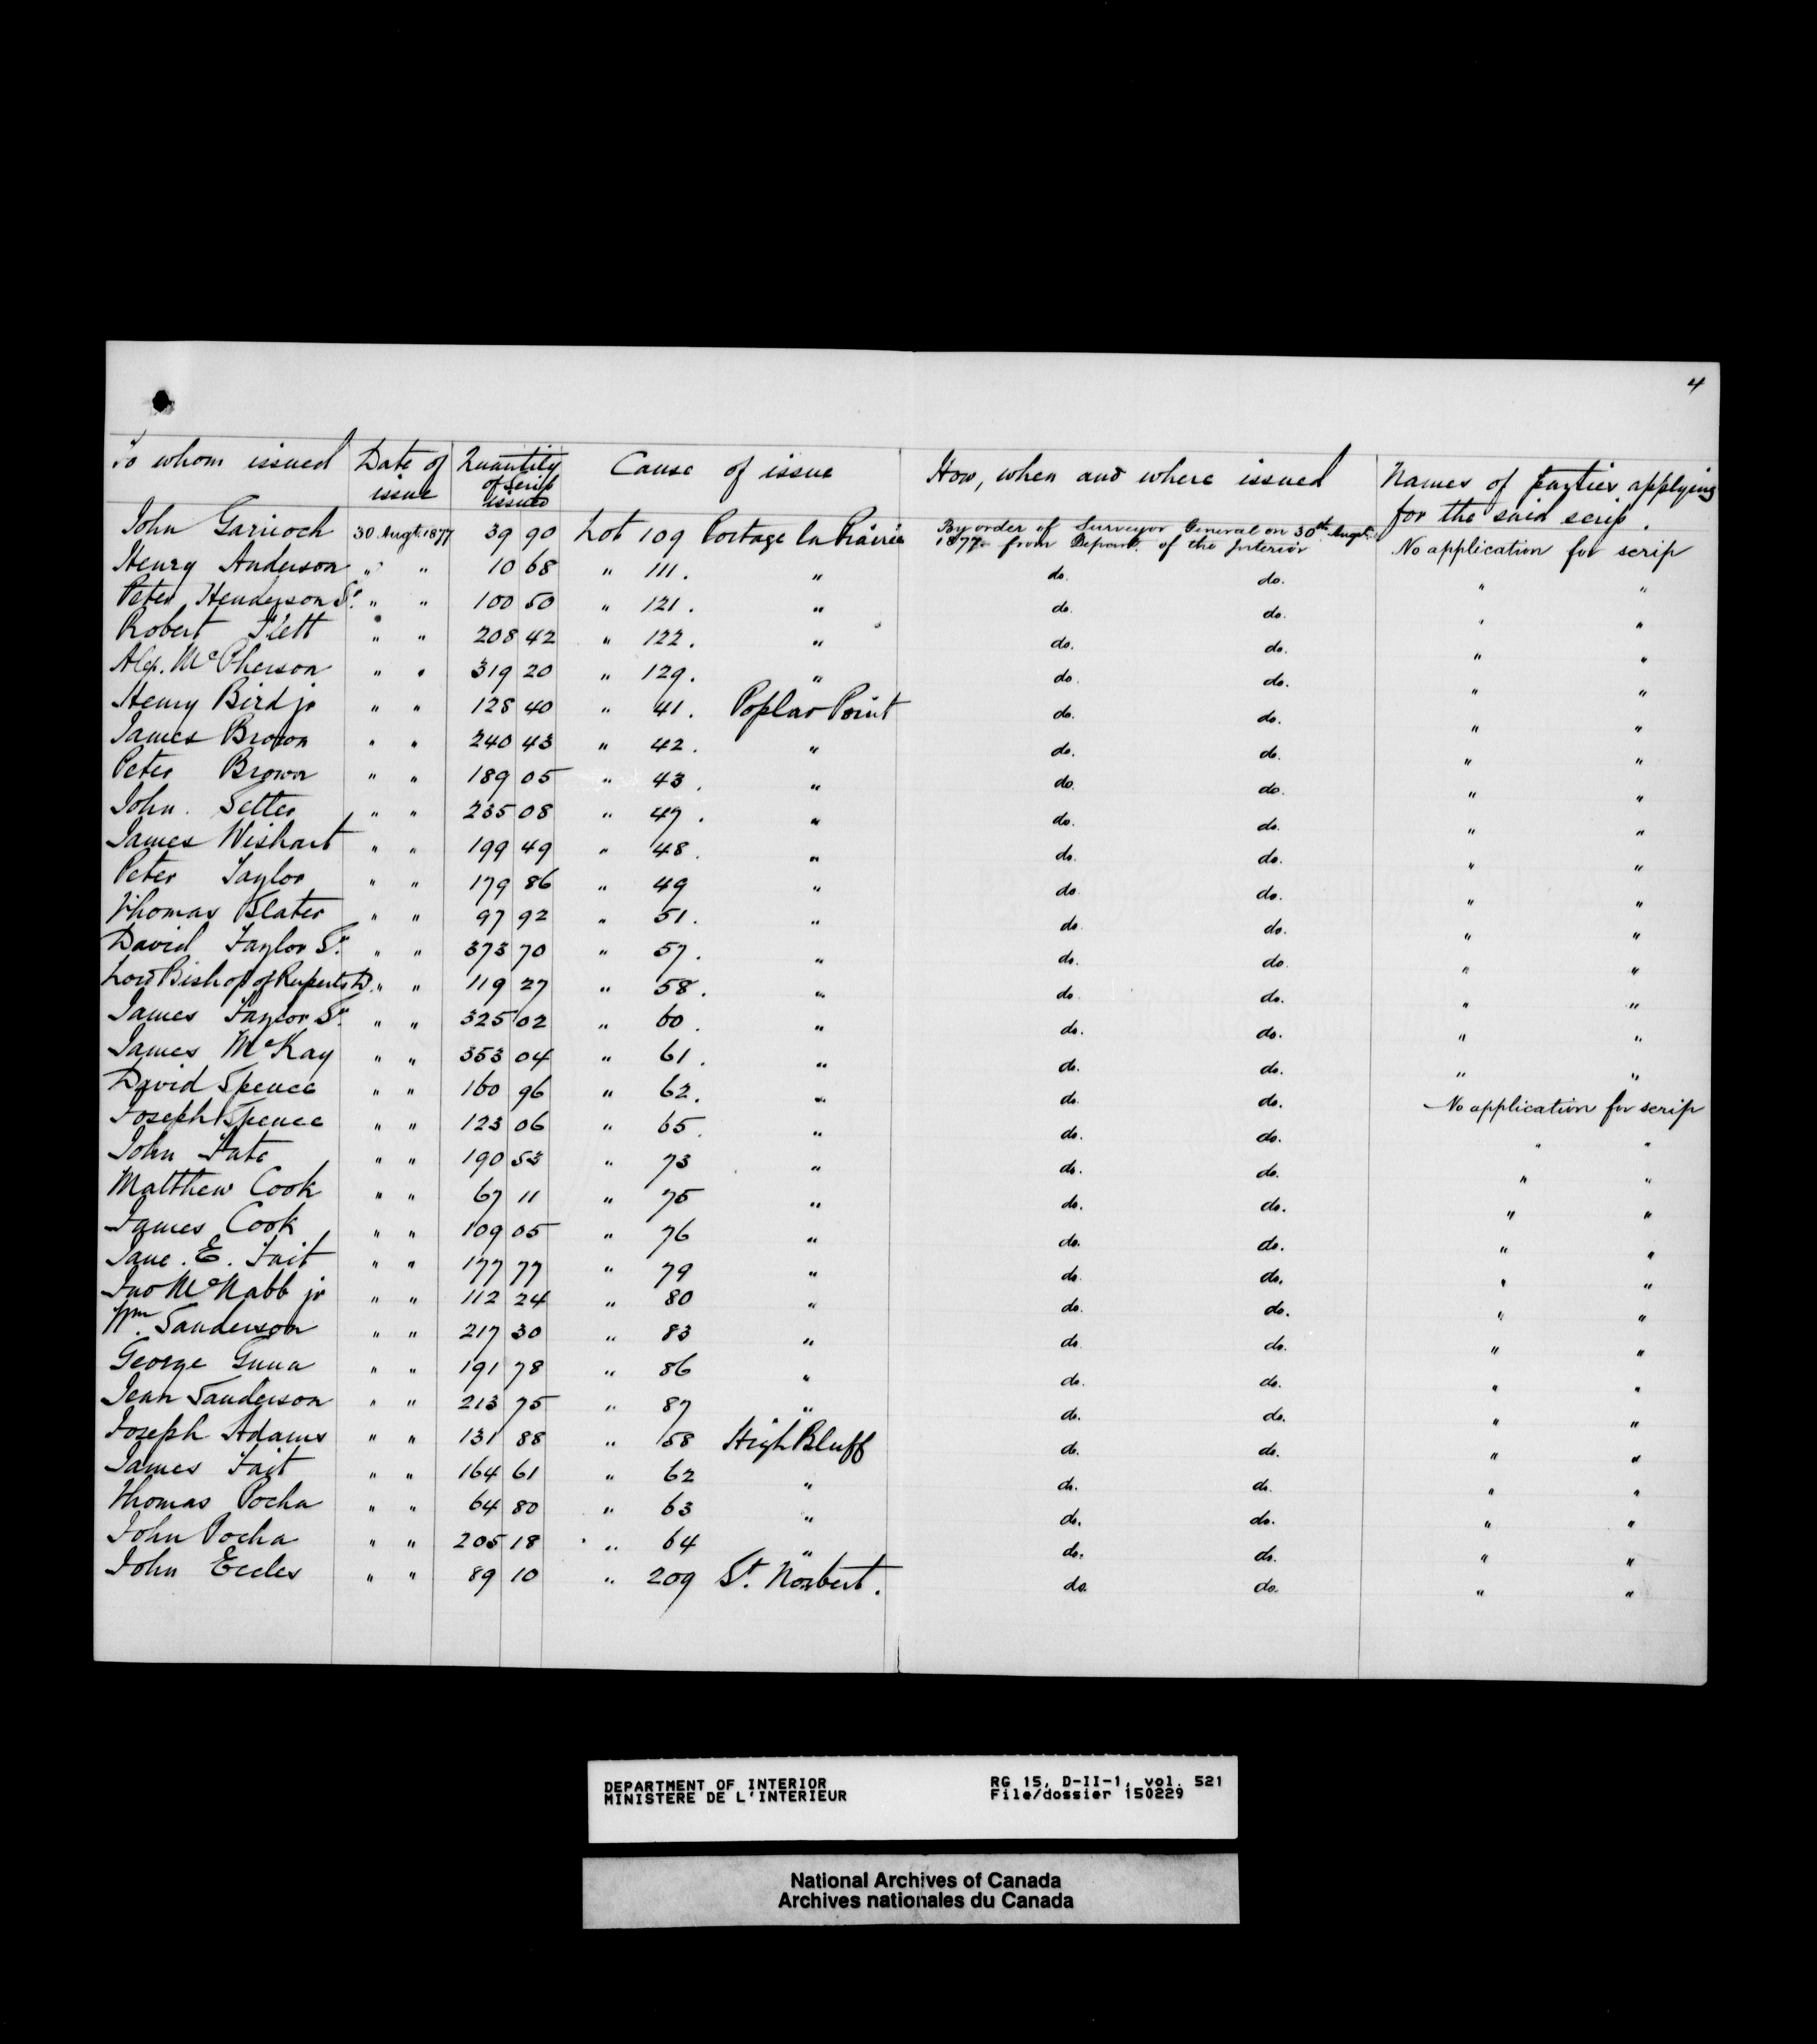 4
To whom issued Date of issue Quantity of Scrip issued Cause of issue How, when and where issued Names of parties applying for the said scrip.
John Garrioch 30 Augt. 1877 39 90 Lot 109 Portage la Prairie By order of Surveyor General on 30th Augt. 1877 from Depart. of the Interior No application for scrip
Henry Anderson " " 10 68 " 111. " do. do. " "
Peter Henderson Sr. " " 100 50 " 121. " do. do. " "
Robert Flett " " 208 42 " 122. " do. do. " "
Alex. McPherson " " 319 20 " 129. " do. do. " "
Henry Bird jr " " 128 40 " 41. Poplar Point do. do. " "
James Brown " " 240 43 " 42. " do. do. " "
Peter Brown " " 189 05 " 43. " do. do. " "
John Setter " " 235 08 " 47. " do. do. " "
James Wishart " " 199 49 " 48. " do. do. " "
Peter Taylor " " 179 86 " 49 " do. do. " "
Thomas Slater " " 97 92 " 51. " do. do. " "
David Taylor Sr. " " 373 70 " 57. " do. do. " "
Lord Bishop of Ruperts Ld. " " 119 27 " 58. " do. do. " "
James Taylor Sr. " " 325 02 " 60. " do. do. " "
James McKay " " 353 04 " 61. " do. do. " "
David Spence " " 160 96 " 62. " do. do. No application for scrip
Joseph Spence " " 123 06 " 65. " do. do. " "
John Tate " " 190 53 " 73 " do. do. " "
Matthew Cook " " 67 11 " 75 " do. do. " "
James Cook " " 109 05 " 76 " do. do. " "
Jane. E. Tait " " 177 77 " 79 " do. do. " "
Jno McNabb jr " " 112 24 " 80 " do. do. " "
Wm. Sanderson " " 217 30 " 83 " do. do. " "
George Gunn " " 191 78 " 86 " do. do. " "
Jean Sanderson " " 213 75 " 87 " do. do. " "
Joseph Adams " " 131 88 " 58 High Bluff do. do. " "
James Tait " " 164 61 " 62 " do. do. " "
Thomas Pocha " " 64 80 " 63 " do. do. " "
John Pocha " " 205 18 " 64 " do. do. " "
John Eccles " " 89 10 " 209 St. Norbert. do. do. " "
DEPARTMENT OF INTERIOR RG 15, D-II-1, vol. 521
MINISTERE DE L'INTERIEUR File/dossier 150229
National Archives of Canada
Archives nationales du Canada